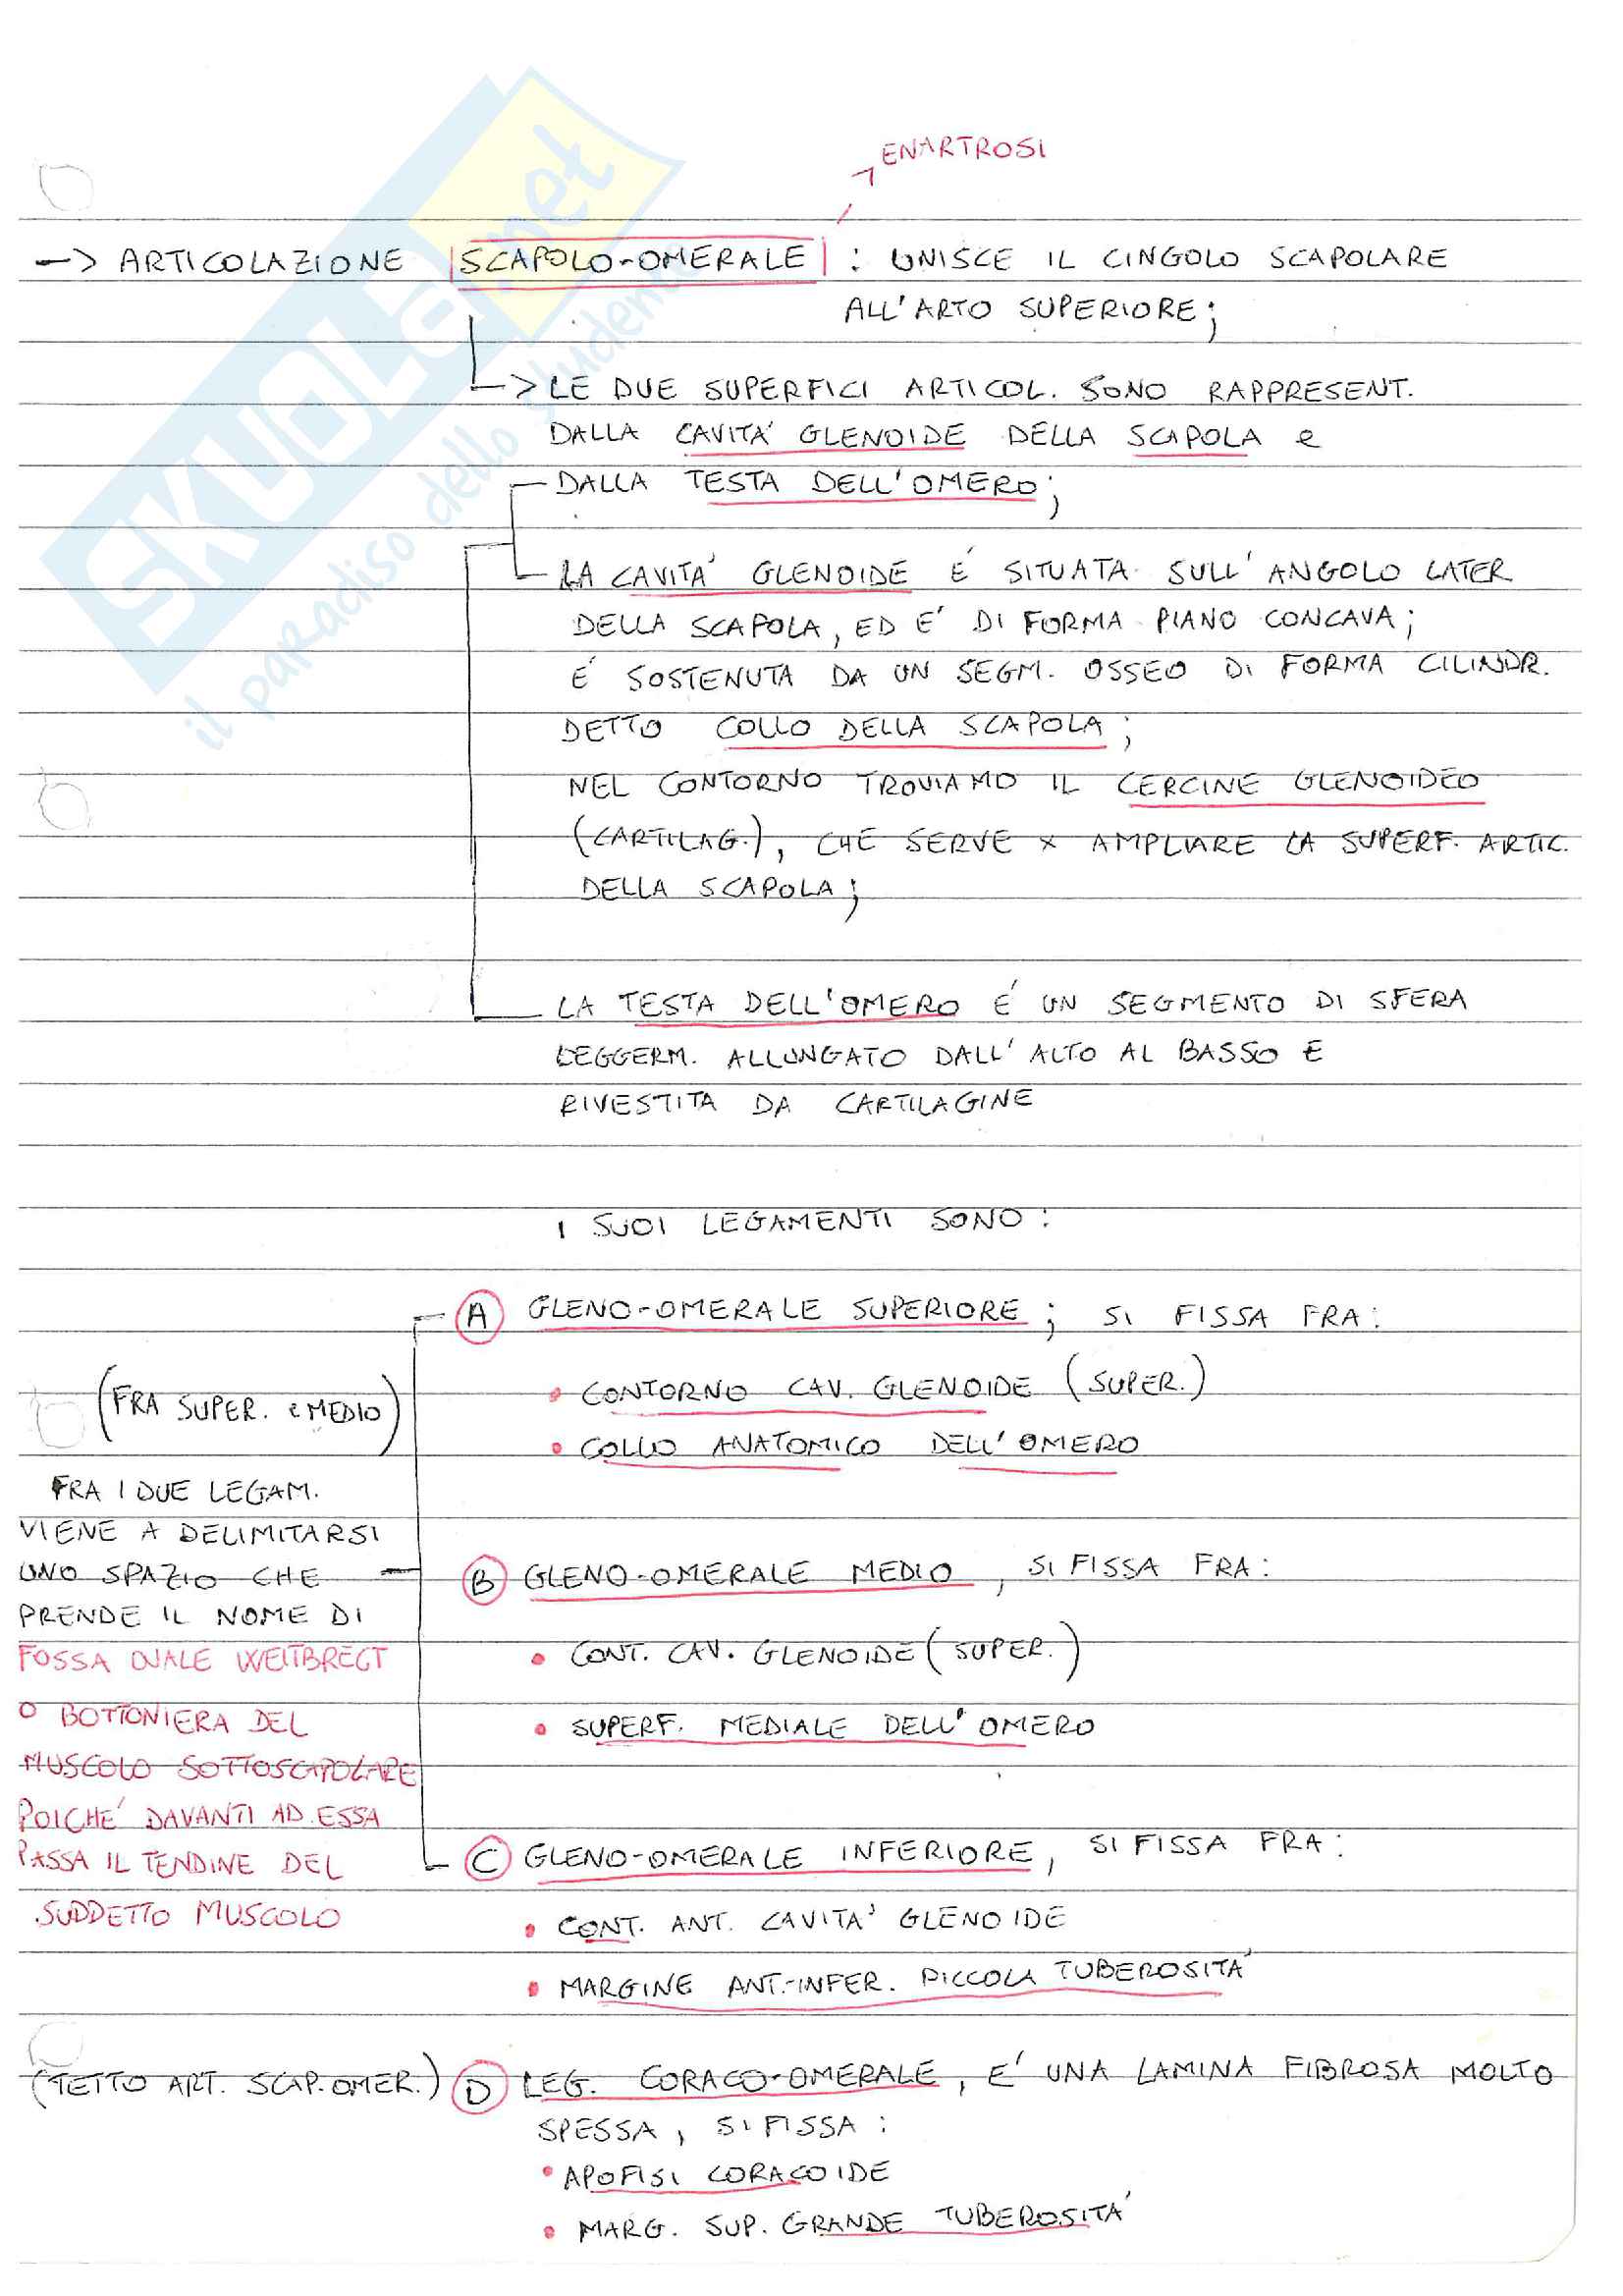 ENARTROSI
-> ARTICOLAZIONE SCAPOLO-OMERALE : UNISCE IL CINGOLO SCAPOLARE
ALL'ARTO SUPERIORE;
-> LE DUE SUPERFICI ARTICOL. SONO RAPPRESENT.
DALLA CAVITA' GLENOIDE DELLA SCAPOLA e
DALLA TESTA DELL'OMERO;
LA CAVITA' GLENOIDE E' SITUATA SULL'ANGOLO LATER
DELLA SCAPOLA, ED E' DI FORMA PIANO CONCAVA;
E' SOSTENUTA DA UN SEGM. OSSEO DI FORMA CILINDR.
DETTO COLLO DELLA SCAPOLA;
NEL CONTORNO TROVIAMO IL CERCINE GLENOIDEO
(CARTILAG.), CHE SERVE x AMPLIARE LA SUPERF. ARTIC.
DELLA SCAPOLA;
LA TESTA DELL'OMERO E' UN SEGMENTO DI SFERA
LEGGERM. ALLUNGATO DALL'ALTO AL BASSO E
RIVESTITA DA CARTILAGINE
I SUOI LEGAMENTI SONO:
A GLENO-OMERALE SUPERIORE; SI FISSA FRA:
• CONTORNO CAV. GLENOIDE (SUPER.)
• COLLO ANATOMICO DELL'OMERO
(FRA SUPER. e MEDIO)
FRA I DUE LEGAM.
VIENE A DELIMITARSI
UNO SPAZIO CHE
PRENDE IL NOME DI
FOSSA OVALE WEITBRECT
O BOTTONIERA DEL
MUSCOLO SOTTOSCAPOLARE
POICHE' DAVANTI AD ESSA
PASSA IL TENDINE DEL
SUDDETTO MUSCOLO
B GLENO-OMERALE MEDIO, SI FISSA FRA:
• CONT. CAV. GLENOIDE (SUPER.)
• SUPERF. MEDIALE DELL'OMERO
C GLENO-OMERALE INFERIORE, SI FISSA FRA:
• CONT. ANT. CAVITA' GLENOIDE
• MARGINE ANT.-INFER. PICCOLA TUBEROSITA'
(TETTO ART. SCAP. OMER.) D LEG. CORACO-OMERALE, E' UNA LAMINA FIBROSA MOLTO
SPESSA, SI FISSA:
• APOFISI CORACOIDE
• MARG. SUP. GRANDE TUBEROSITA'
SKUOLA.net
il paradiso dello studente